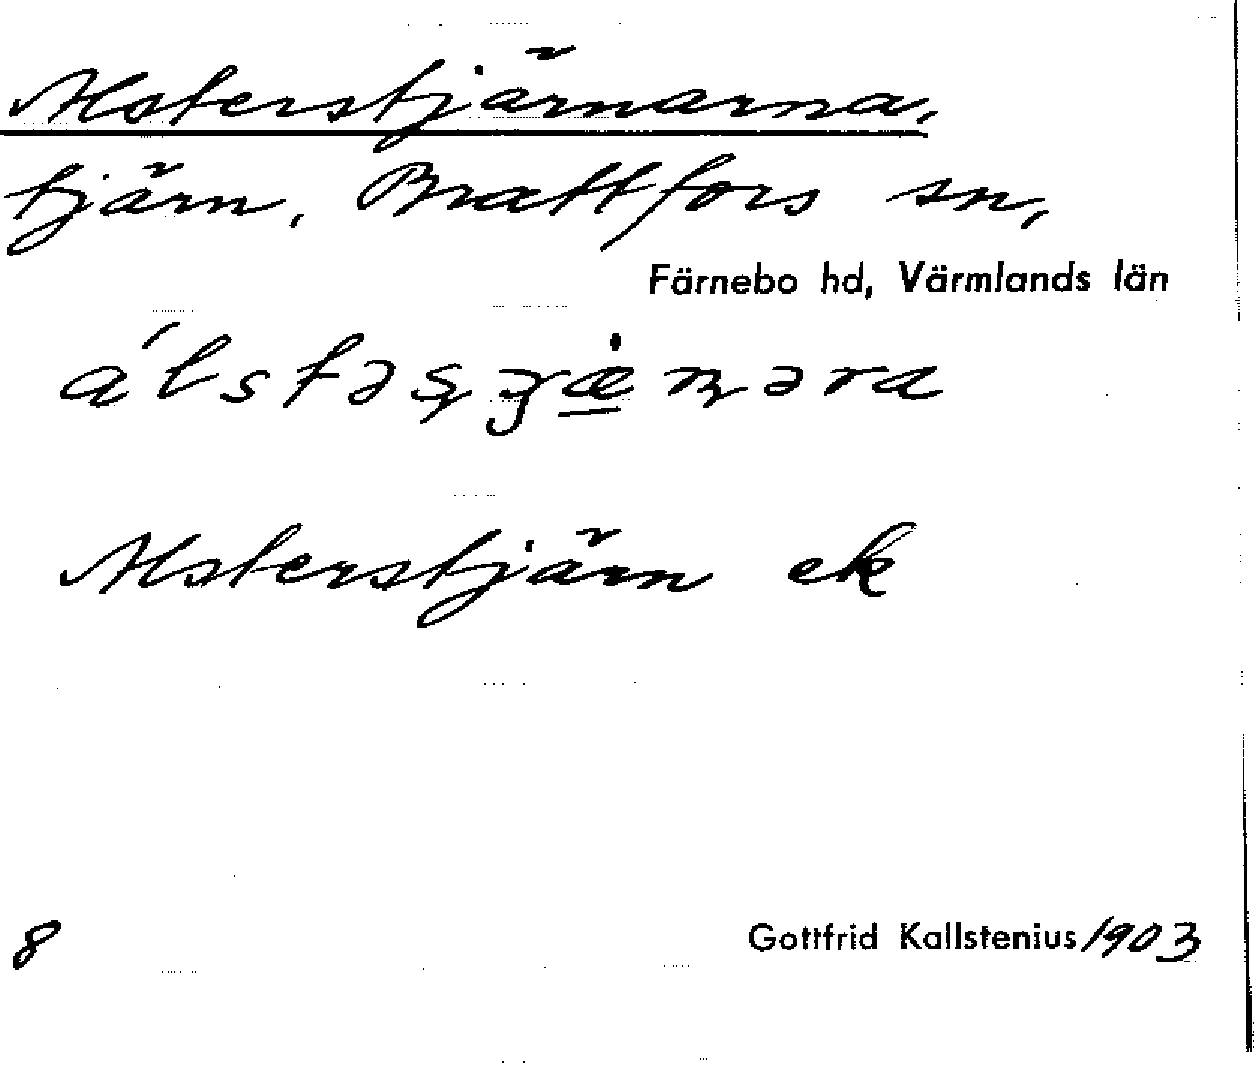 Alsterstjärnarna,
tjärn, Brattfors sn,
Färnebo hd, Värmlands län
Alsterstjärn ek
8
Gottfrid Kallstenius/1903